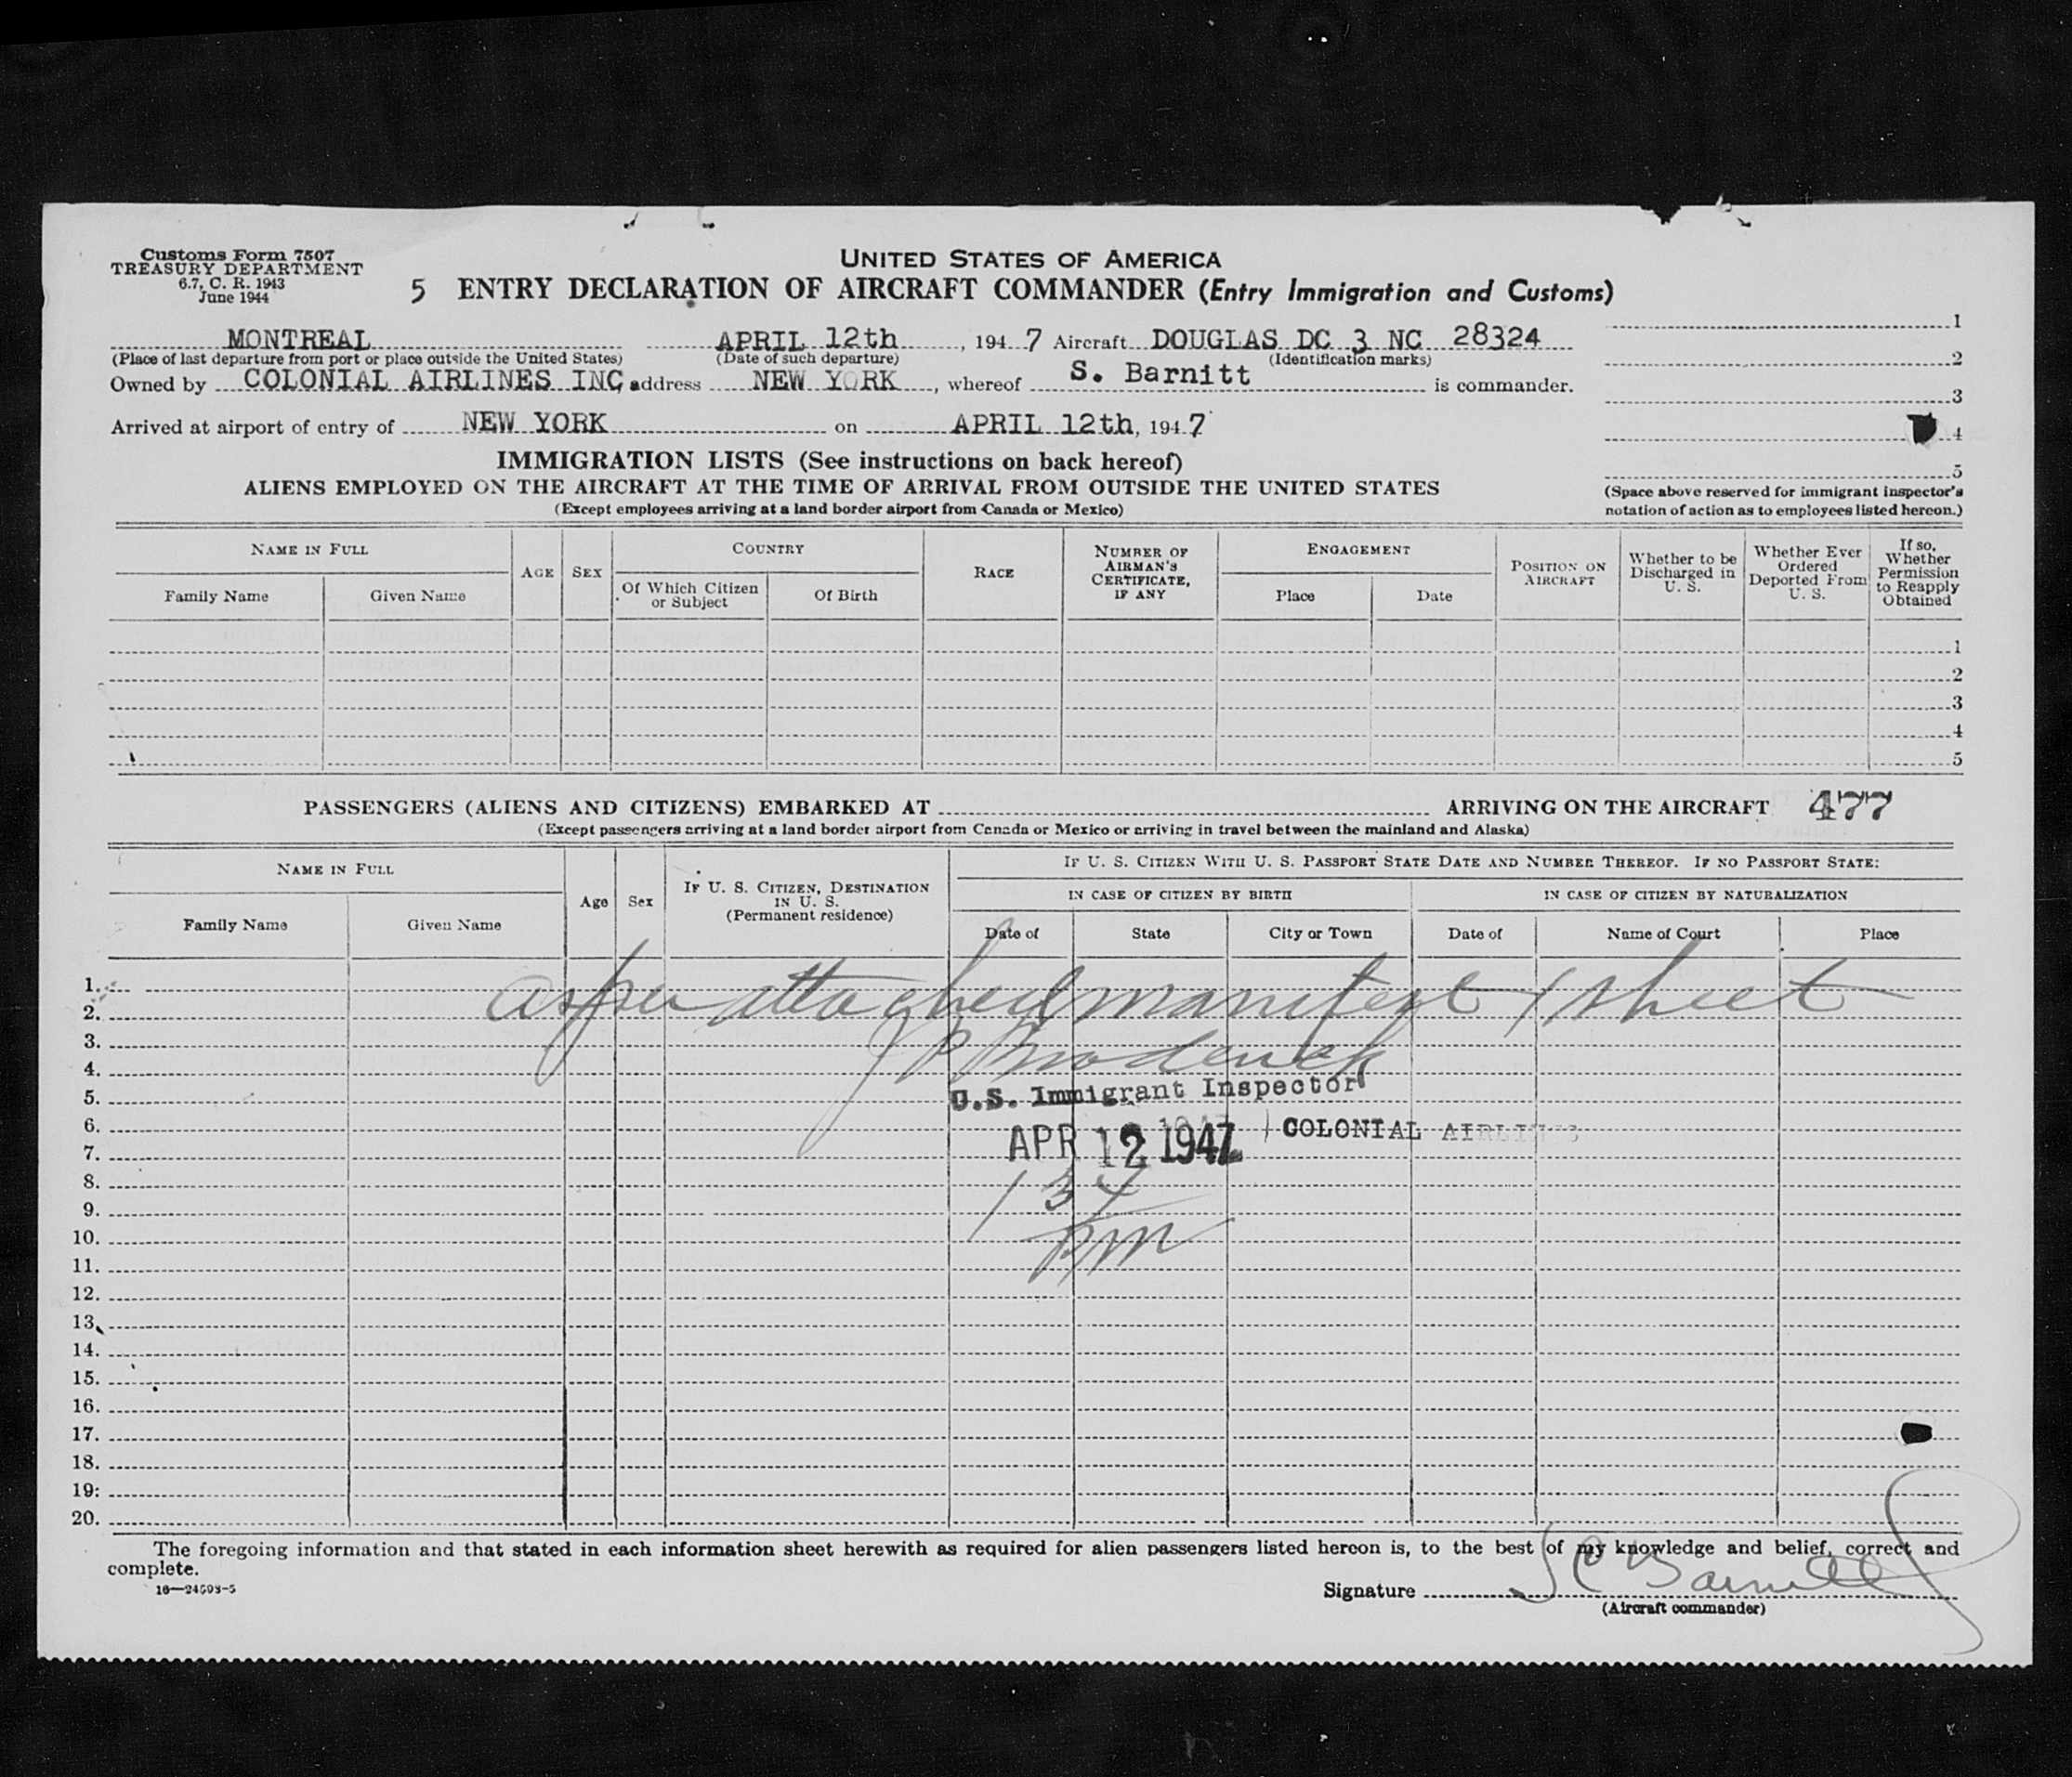 Customs Form 7507
TREASURY DEPARTMENT
6.7, C. R. 1943
June 1944
UNITED STATES OF AMERICA
5 ENTRY DECLARATION OF AIRCRAFT COMMANDER (Entry Immigration and Customs)
MONTREAL APRIL 12th, 1947 Aircraft DOUGLAS DC 3 NC 28324
(Place of last departure from port or place outside the United States) (Date of such departure) (Identification marks)
Owned by COLONIAL AIRLINES INC, address NEW YORK, whereof S. Barnitt is commander.
Arrived at airport of entry of NEW YORK on APRIL 12th, 1947
1
2
3
4
5
(Space above reserved for immigrant inspector's
notation of action as to employees listed hereon.)
IMMIGRATION LISTS (See instructions on back hereof)
ALIENS EMPLOYED ON THE AIRCRAFT AT THE TIME OF ARRIVAL FROM OUTSIDE THE UNITED STATES
(Except employees arriving at a land border airport from Canada or Mexico)
NAME IN FULL
Family Name
Given Name
AGE
SEX
COUNTRY
Of Which Citizen
or Subject
Of Birth
RACE
NUMBER OF
AIRMAN'S
CERTIFICATE,
IF ANY
ENGAGEMENT
Place
Date
POSITION ON
AIRCRAFT
Whether to be
Discharged in
U. S.
Whether Ever
Ordered
Deported From
U. S.
If so,
Whether
Permission
to Reapply
Obtained
1
2
3
4
5
PASSENGERS (ALIENS AND CITIZENS) EMBARKED AT ARRIVING ON THE AIRCRAFT 477
(Except passengers arriving at a land border airport from Canada or Mexico or arriving in travel between the mainland and Alaska)
NAME IN FULL
Family Name
Given Name
Age
Sex
IF U. S. CITIZEN, DESTINATION
IN U. S.
(Permanent residence)
IF U. S. CITIZEN WITH U. S. PASSPORT STATE DATE AND NUMBER THEREOF. IF NO PASSPORT STATE:
IN CASE OF CITIZEN BY BIRTH
IN CASE OF CITIZEN BY NATURALIZATION
Date of
State
City or Town
Date of
Name of Court
Place
1.
2.
3.
4.
5.
6.
7.
8.
9.
10.
11.
12.
13.
14.
15.
16.
17.
18.
19.
20.
as per attached manifest 1 sheet
J P Broderick
U.S. Immigrant Inspector
APR 12 1947 COLONIAL AIRLINES
1 34
PM
The foregoing information and that stated in each information sheet herewith as required for alien passengers listed hereon is, to the best of my knowledge and belief, correct and
complete.
16—24598-5
Signature S C Barnitt
(Aircraft commander)